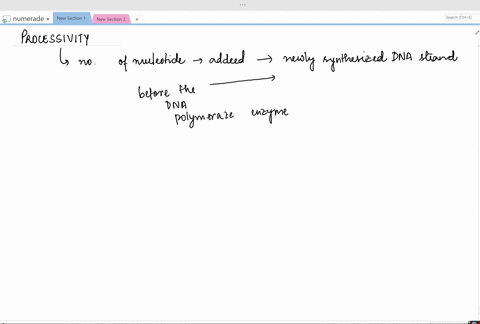 numerade
New Section 1
New Section 2
+
PROCESSIVITY
↳ no. of nucleotide → addeed → newly synthesized DNA strand
before the →
DNA
polymeraze enzyme